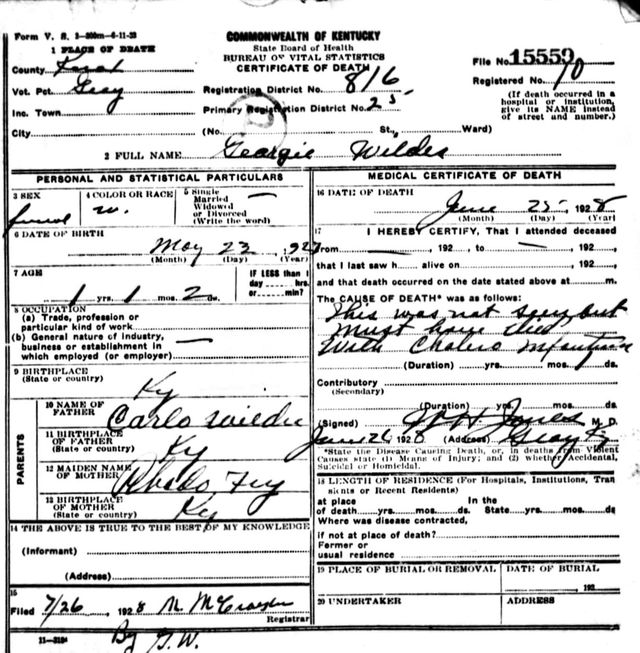 Form V. S. 3—300m—6-11-23
COMMONWEALTH OF KENTUCKY
State Board of Health
BUREAU OF VITAL STATISTICS
CERTIFICATE OF DEATH
1 PLACE OF DEATH
County Knox
Vot. Pct. Gray
Inc. Town
City
Registration District No. 816
Primary Registration District No. 25
(No. St., Ward)
File No. 15559
Registered No. 10
(If death occurred in a
hospital or institution,
give its NAME instead
of street and number.)
2 FULL NAME Georgie Wilder
PERSONAL AND STATISTICAL PARTICULARS
3 SEX
4 COLOR OR RACE
w.
5 Single
Married
Widowed
or Divorced
(Write the word)
6 DATE OF BIRTH
May 23, 1927
(Month) (Day) (Year)
7 AGE
1 yrs. 1 mos. 2 ds.
IF LESS than 1
day hrs.
or min.?
8 OCCUPATION
(a) Trade, profession or
particular kind of work
(b) General nature of industry,
business or establishment in
which employed (or employer)
9 BIRTHPLACE
(State or country)
Ky
PARENTS
10 NAME OF
FATHER
Carlo Wilder
11 BIRTHPLACE
OF FATHER
(State or country)
Ky
12 MAIDEN NAME
OF MOTHER
13 BIRTHPLACE
OF MOTHER
(State or country)
Ky
14 THE ABOVE IS TRUE TO THE BEST OF MY KNOWLEDGE
(Informant)
(Address)
15
Filed 7/26, 1928
Registrar
By G.W.
11—3184
MEDICAL CERTIFICATE OF DEATH
16 DATE OF DEATH
June 25 1928
(Month) (Day) (Year)
17 I HEREBY CERTIFY, That I attended deceased
from — , 192 , to — , 192 ,
that I last saw h alive on , 192 ,
and that death occurred on the date stated above at m.
The CAUSE OF DEATH* was as follows:
This was not seen but
must have died
With Cholera Infantum
(Duration) yrs. mos. ds.
Contributory
(Secondary)
(Duration) yrs. mos. ds.
(Signed) W H Jones M. D.
June 26 1928 (Address) Gray Ky
*State the Disease Causing Death, or, in deaths from Violent
Causes state (1) Means of Injury; and (2) whether Accidental,
Suicidal or Homicidal.
18 LENGTH OF RESIDENCE (For Hospitals, Institutions, Tran
sients or Recent Residents)
at place In the
of death yrs. mos. ds. State yrs. mos. ds.
Where was disease contracted,
if not at place of death?
Former or
usual residence
19 PLACE OF BURIAL OR REMOVAL
DATE OF BURIAL
, 192
20 UNDERTAKER
ADDRESS